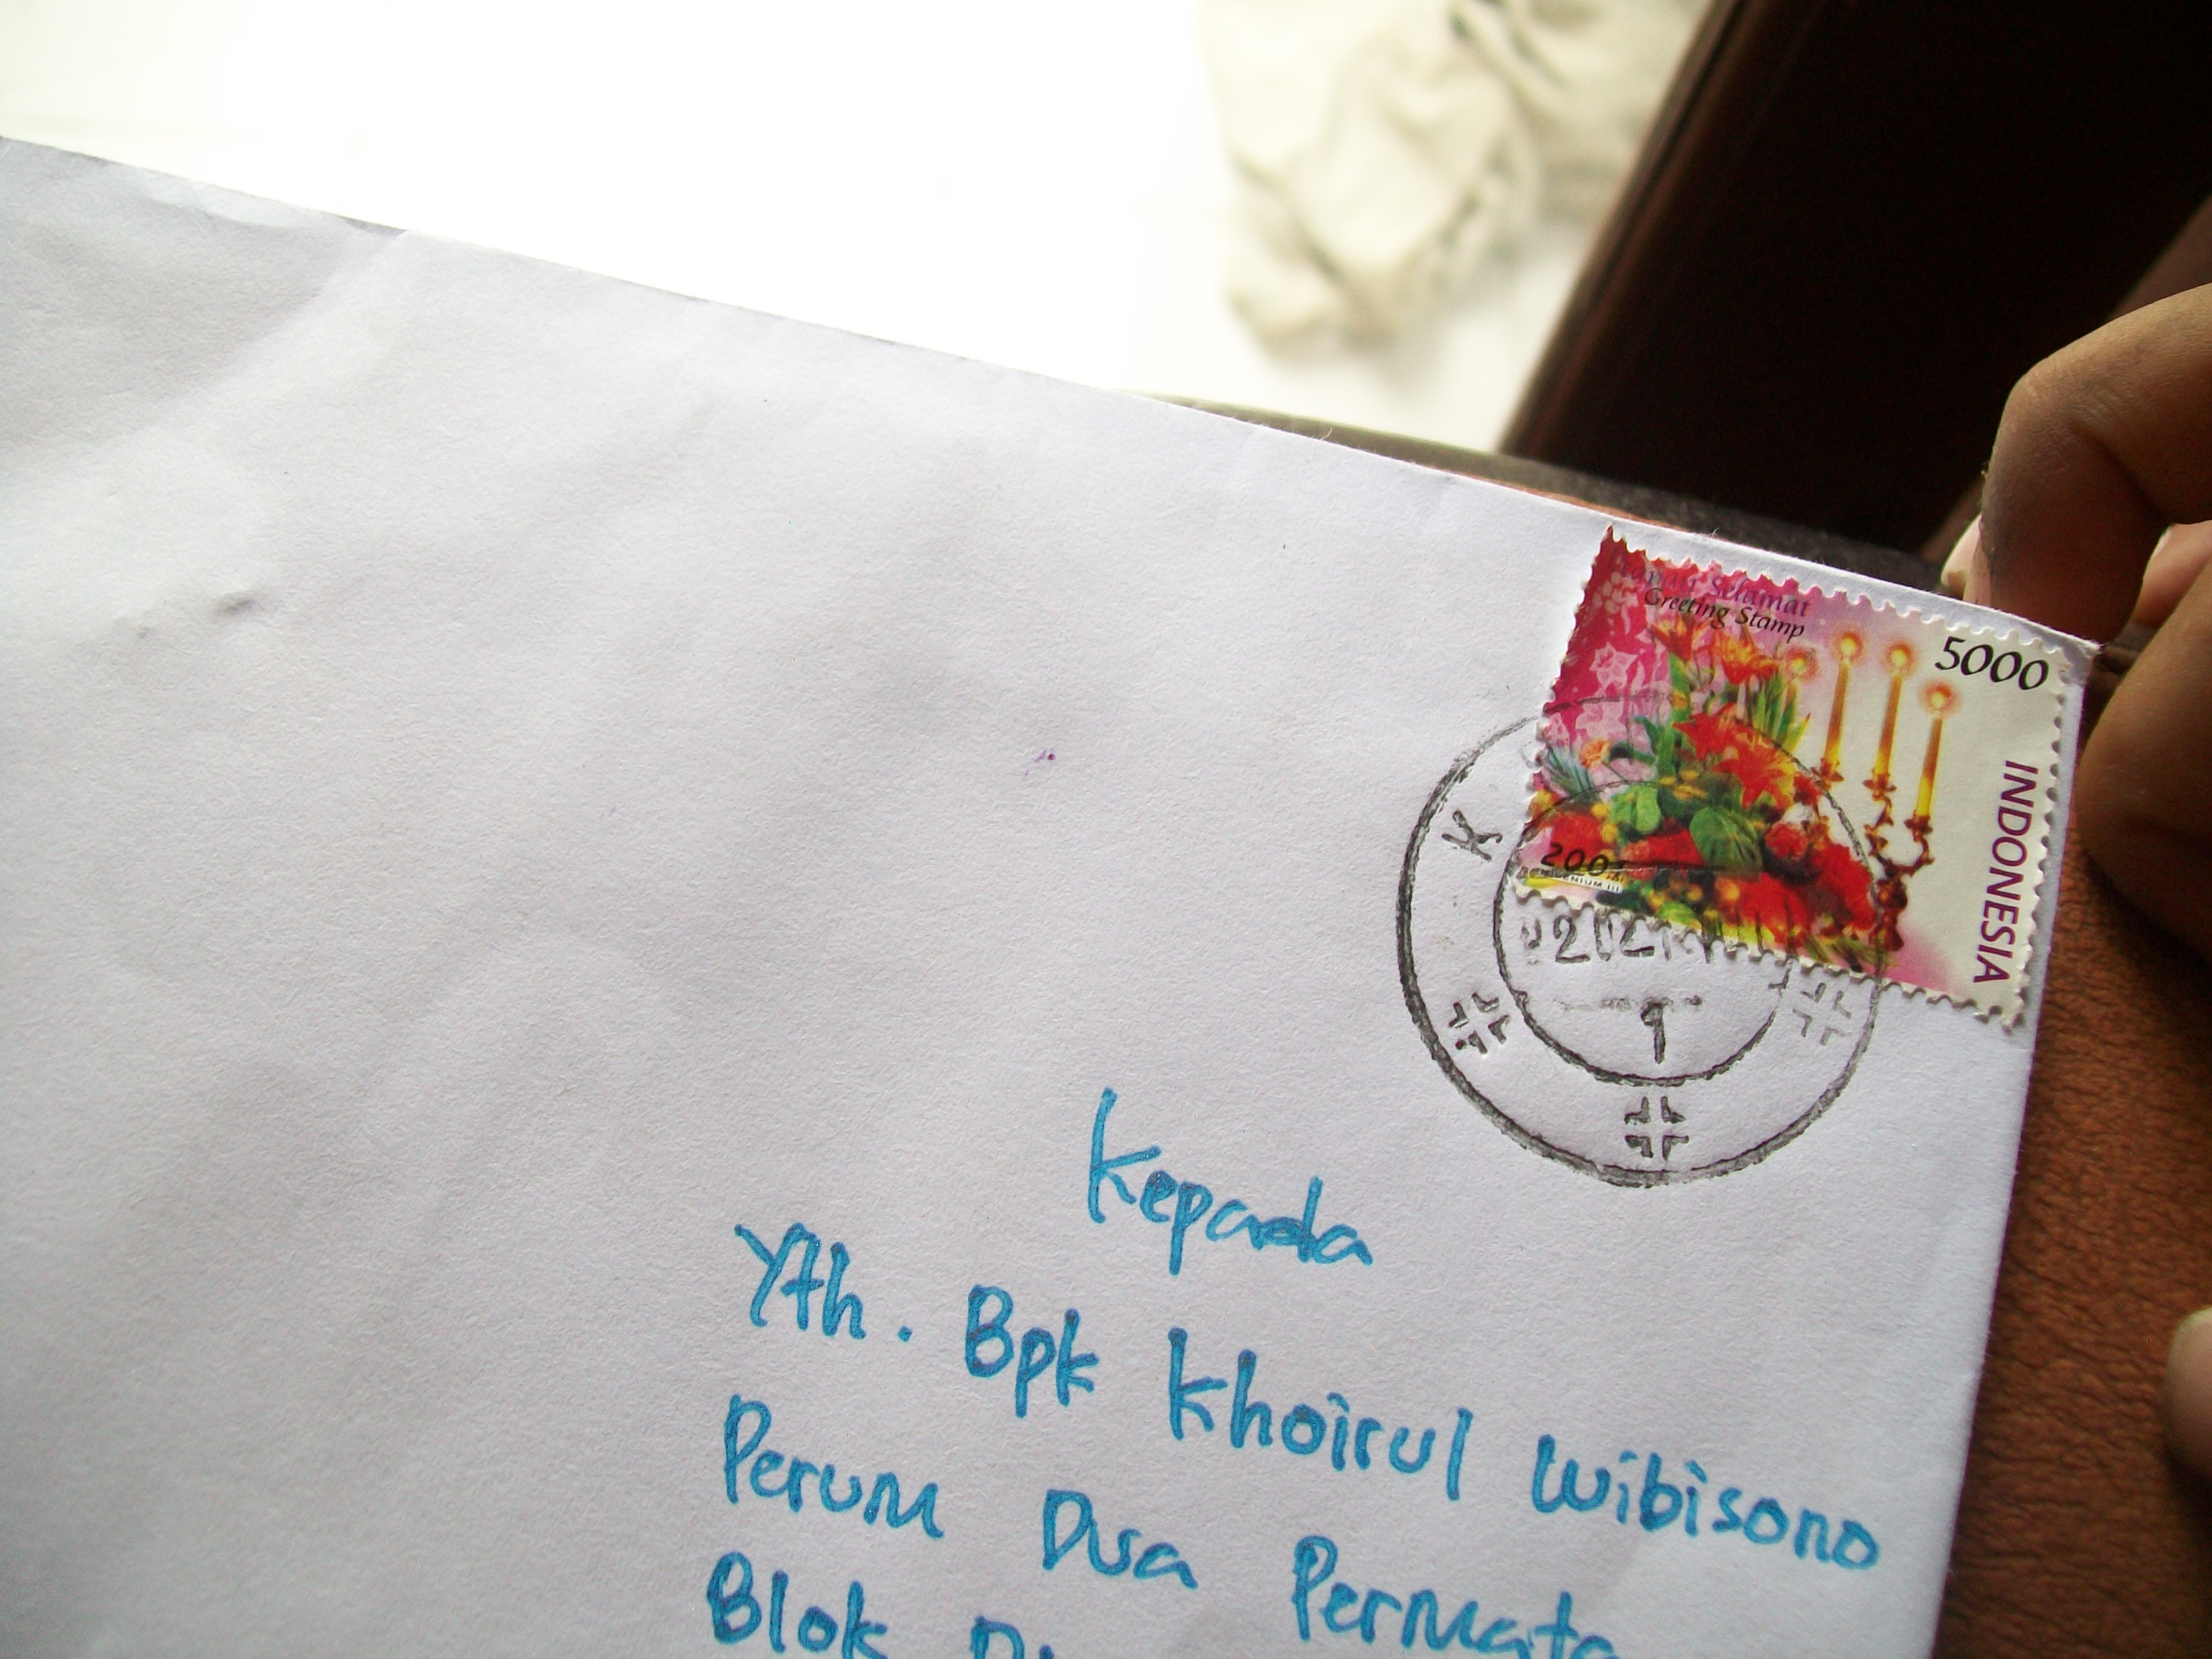 Ucapan Selamat
Greeting Stamp
5000
INDONESIA
K
1
Kepada
Yth. Bpk Khoirul Wibisono
Perum Dusa Permata
Blok